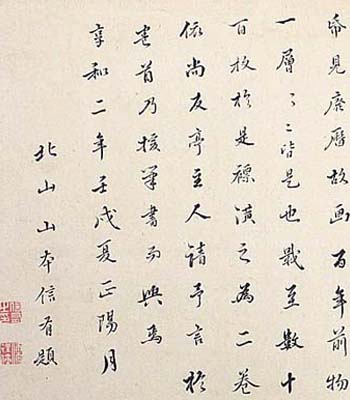 見暦故画百年前物
一層〻〻皆是也至数十
百枚於是褾潢之為二巻
依尚友亭主人請予言於
巻首乃援筆書而與焉
享和二年壬戌夏正陽月
北山山本信有題